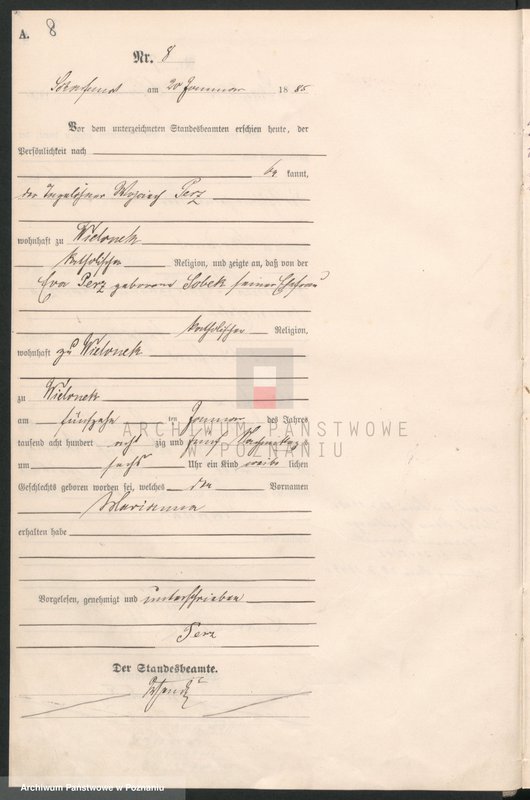 A. 8
Nr. 8
am 20 Januar 1885
Vor dem unterzeichneten Standesbeamten erschien heute, der
Persönlichkeit nach
be kannt,
der Tagelöhner Woyciech Perz
wohnhaft zu Wielonek
katholischer Religion, und zeigte an, daß von der
Eva Perz geborene Sobek seiner Ehefrau
katholischer Religion,
wohnhaft zu Wielonek
zu Wielonek
am fünfzehn ten Januar des Jahres
tausend acht hundert acht zig und fünf Nachmittags
um sechs Uhr ein Kind weib lichen
Geschlechts geboren worden sei, welches den Vornamen
Marianna
erhalten habe
Vorgelesen, genehmigt und unterschrieben
Perz
Der Standesbeamte.
ARCHIWUM PAŃSTWOWE
W POZNANIU
Archiwum Państwowe w Poznaniu